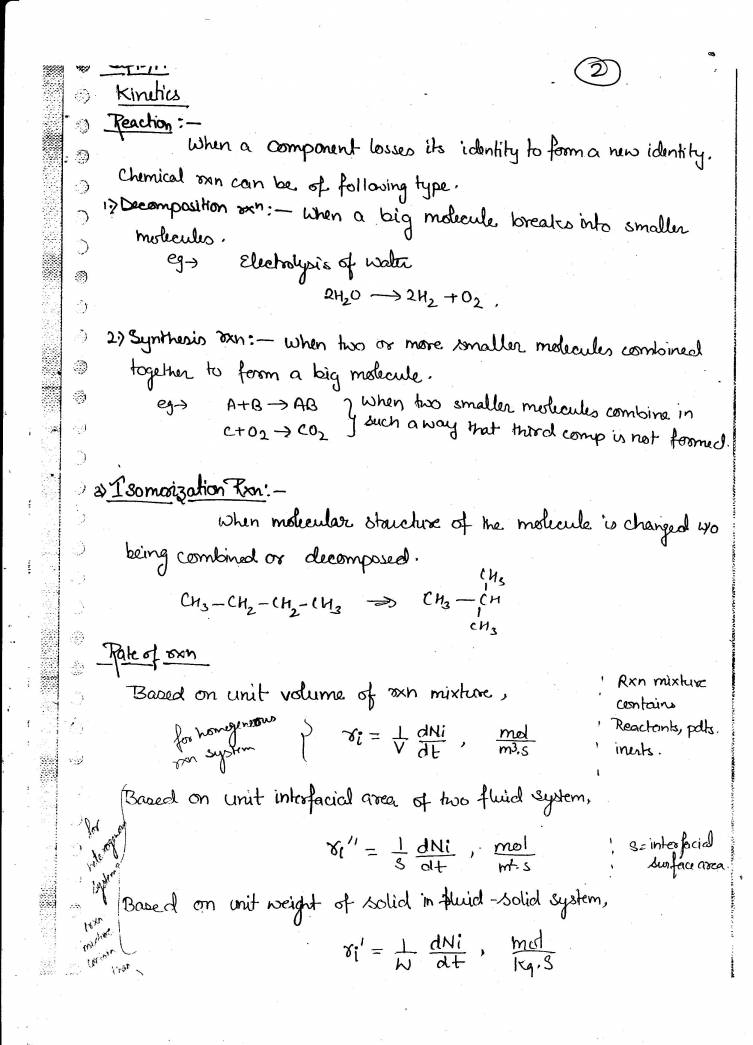 2
Kinetics
Reaction :-
When a component losses its identity to form a new identity.
Chemical rxn can be of following type.
1) Decomposition rxn :- When a big molecule breaks into smaller
molecules.
eg → Electrolysis of water
2H₂O → 2H₂ + O₂ .
2) Synthesis rxn :- When two or more smaller molecules combined
together to form a big molecule.
eg → A+B → AB } When two smaller molecules combine in
C+O₂ → CO₂ } such a way that third comp is not formed.
3) Isomorization Rxn :-
When molecular structure of the molecule is changed w/o
being combined or decomposed.
CH₃
CH₃-CH₂-CH₂-CH₃ ⇒ CH₃ - CH
CH₃
Rate of rxn
Based on unit volume of rxn mixture,
for homogeneous
rxn system } ri = 1/V dNi/dt , mol/m³.s
Rxn mixture
contains
Reactants, pdts.
inerts.
Based on unit interfacial area of two fluid system,
for
system
ri'' = 1/S dNi/dt , mol/m².s
S = interfacial
surface area
Based on unit weight of solid in fluid-solid system,
rxn
ri' = 1/W dNi/dt , mol/kg.S